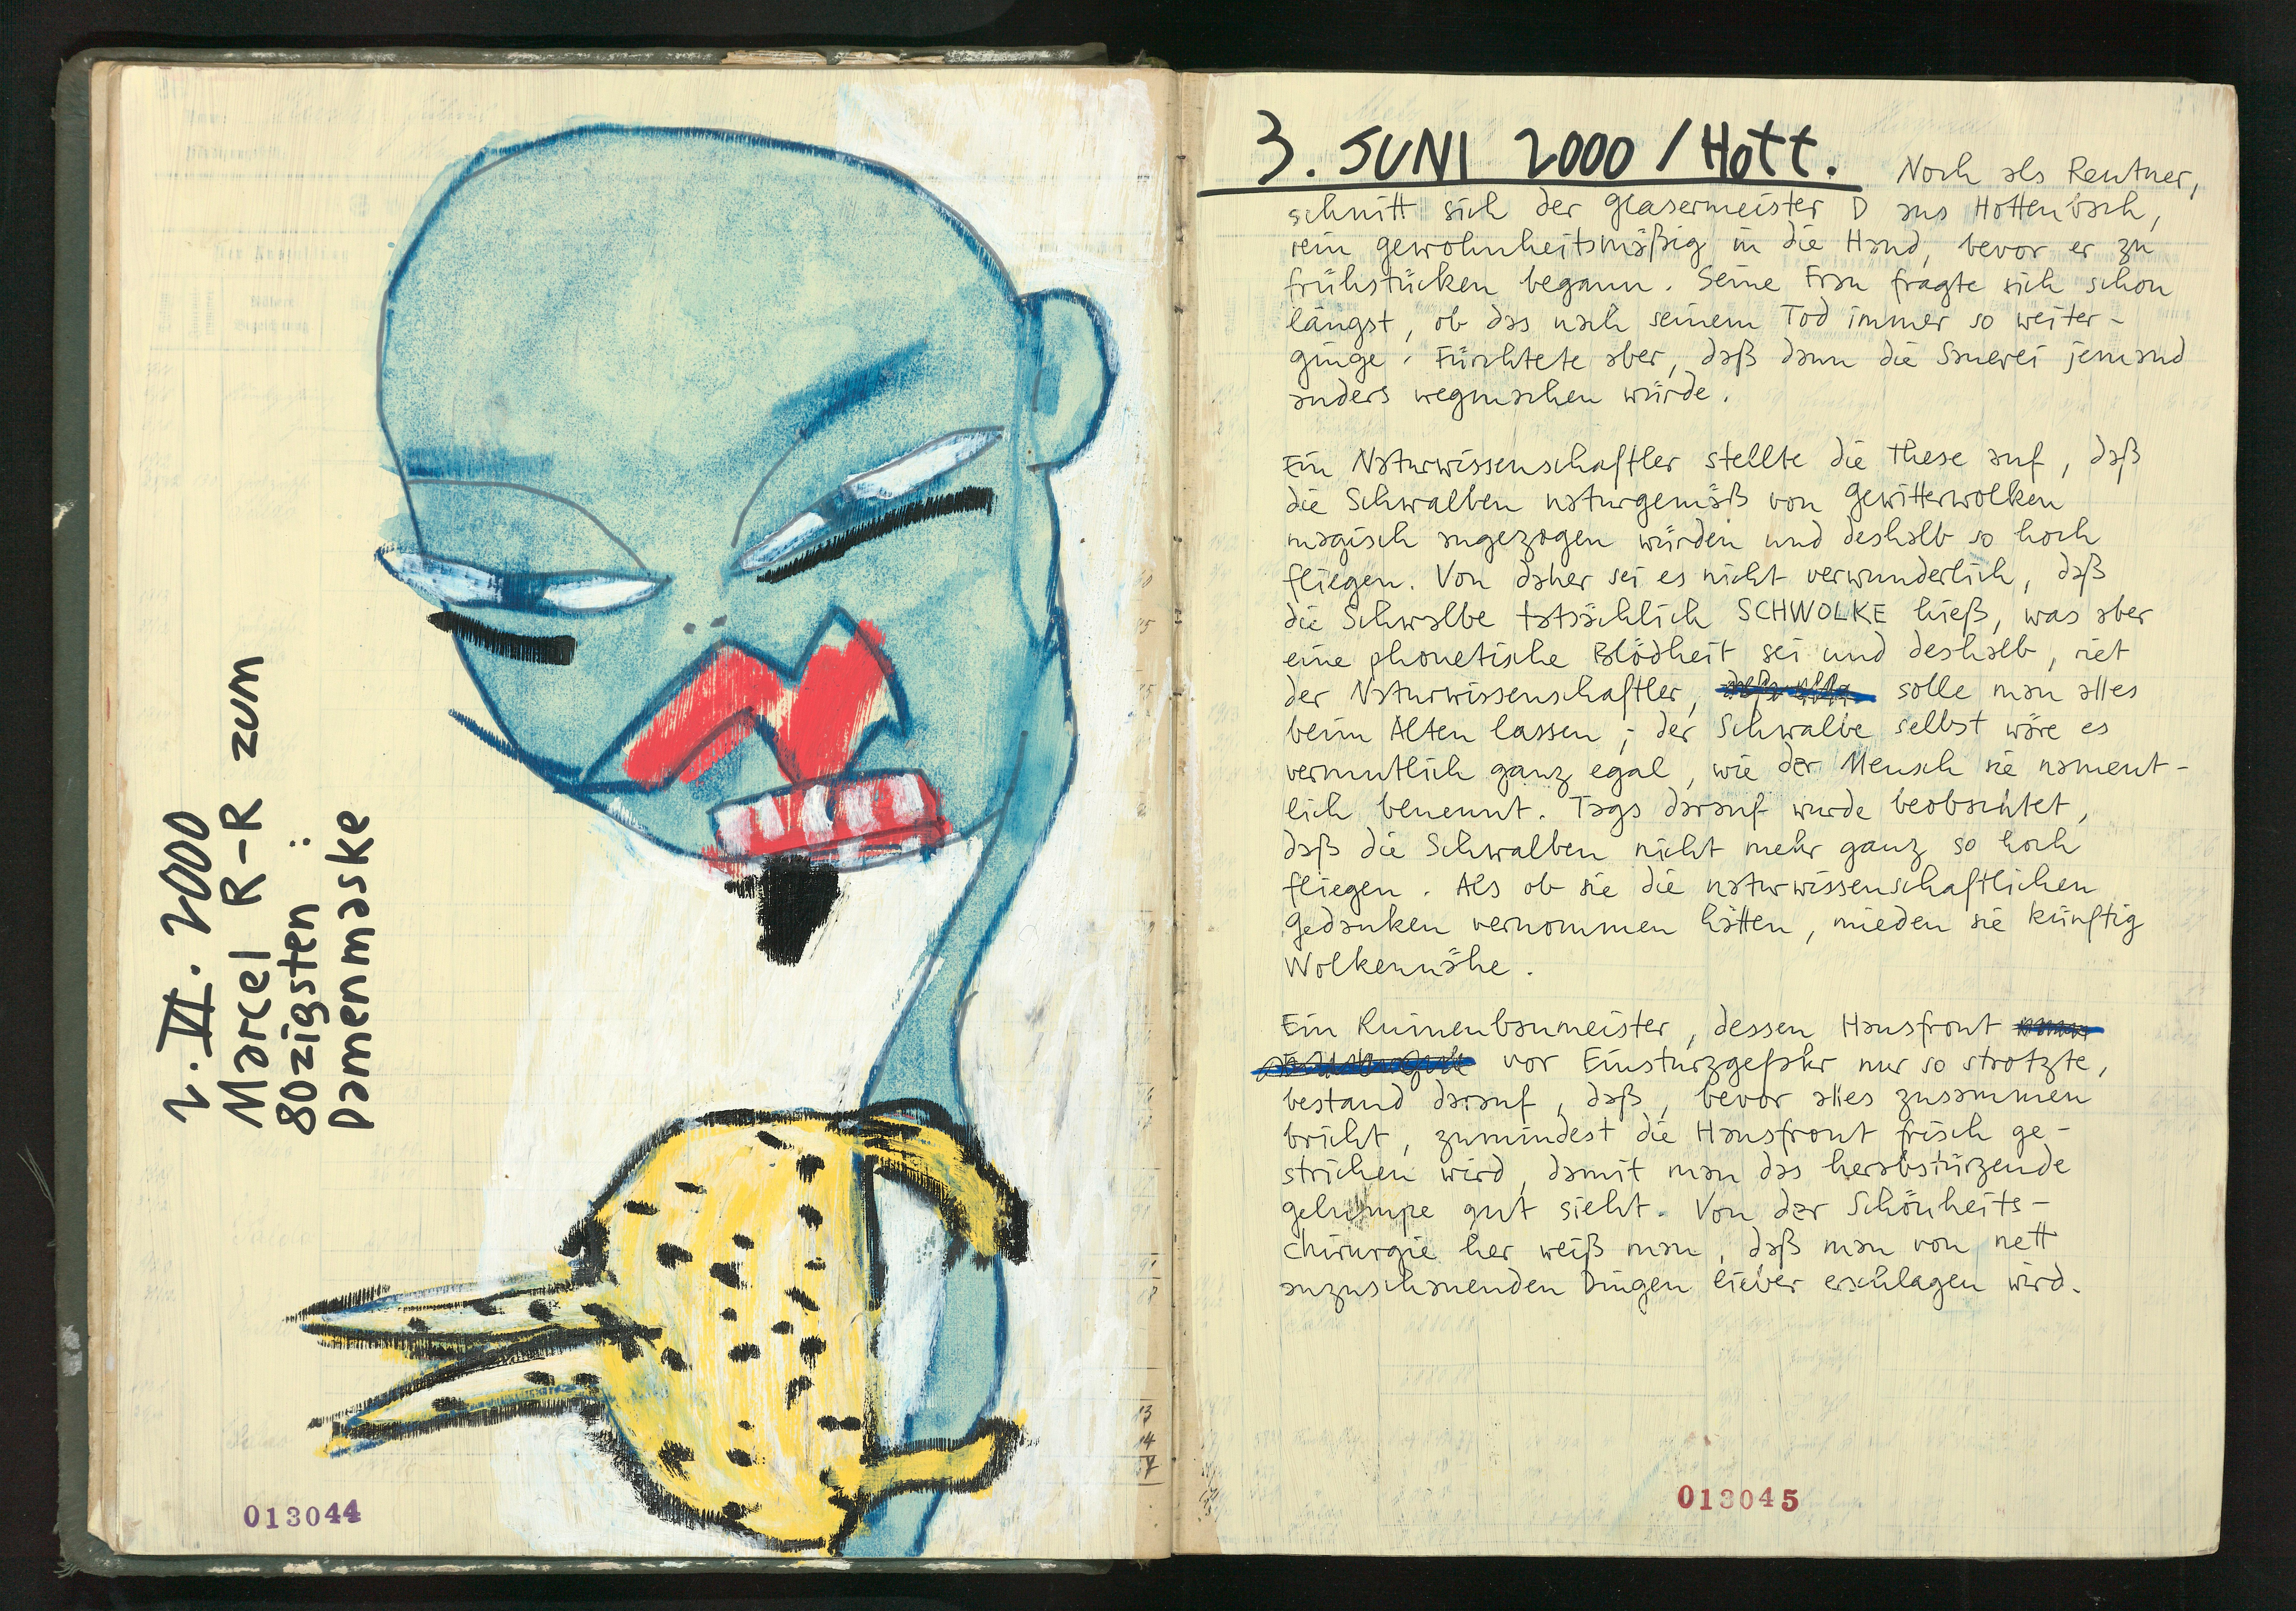 2. VI. 2000
Marcel R-R zum
80zigsten:
Damenmaske
013044
3. JUNI 2000 / Hott.
Noch als Rentner,
schnitt sich der Glasermeister D aus Hottenbach,
rein gewohnheitsmäßig in die Hand, bevor er zu
frühstücken begann. Seine Frau fragte sich schon
längst, ob das nach seinem Tod immer so weiter-
ginge. Fürchtete aber, daß dann die Sauerei jemand
anders wegmachen würde.
Ein Naturwissenschaftler stellte die These auf, daß
die Schwalben naturgemäß von Gewitterwolken
magisch angezogen würden und deshalb so hoch
fliegen. Von daher sei es nicht verwunderlich, daß
die Schwalbe tatsächlich SCHWOLKE hieß, was aber
eine phonetische Blödheit sei und deshalb, riet
der Naturwissenschaftler, solle man alles
beim Alten lassen; der Schwalbe selbst wäre es
vermutlich ganz egal, wie der Mensch sie nament-
lich benennt. Tags darauf wurde beobachtet,
daß die Schwalben nicht mehr ganz so hoch
fliegen. Als ob sie die naturwissenschaftlichen
Gedanken vernommen hätten, mieden sie künftig
Wolkennähe.
Ein Ruinenbaumeister, dessen Hausfront
vor Einsturzgefahr nur so strotzte,
bestand darauf, daß, bevor alles zusammen
bricht, zumindest die Hausfront frisch ge-
strichen wird, damit man das herabstürzende
Gelumpe gut sieht. Von der Schönheits-
chirurgie her weiß man, daß man von nett
anzuschauenden Dingen lieber erschlagen wird.
013045